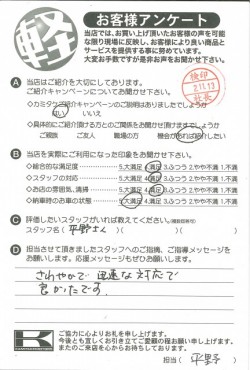 軽
お客様アンケート
当店では、お買い上げ頂いたお客様の声を可能な
限り現場に反映し、お客様により良い商品と
サービスを提供する事に努めています。
大変お手数ですが是非お声をお聞かせ下さい。
検印
A 当店はご紹介を大切にしております。
ご紹介キャンペーンについてお聞かせ下さい。
はい いいえ
ご親族 ご友人 職場の方
B 当店を実際にご利用になった印象をお聞かせ下さい。
◇総合的な満足度 5.大満足 4.満足 3.ふつう 2.やや不満 1.不満
◇スタッフの対応 5.大満足 4.満足 3.ふつう 2.やや不満 1.不満
◇お店の雰囲気、清掃 5.大満足 4.満足 3.ふつう 2.やや不満 1.不満
◇納車時のお車の状態 5.大満足 4.満足 3.ふつう 2.やや不満 1.不満
C 評価したいスタッフがいれば教えてください。(複数回答可)
スタッフ名( 平野さん )
D 担当させて頂きましたスタッフへのご指摘、ご指導メッセージを
お願いします。応援メッセージもぜひお願いします。
さわやかで 迅速な対応で
良かったです。
K
ご協力に心よりお礼を申し上げます。
今後とも宜しくお引き立てご愛顧の程お願い申し上げます。
またのご来店を心からお待ちしております。
担当( 平野 )